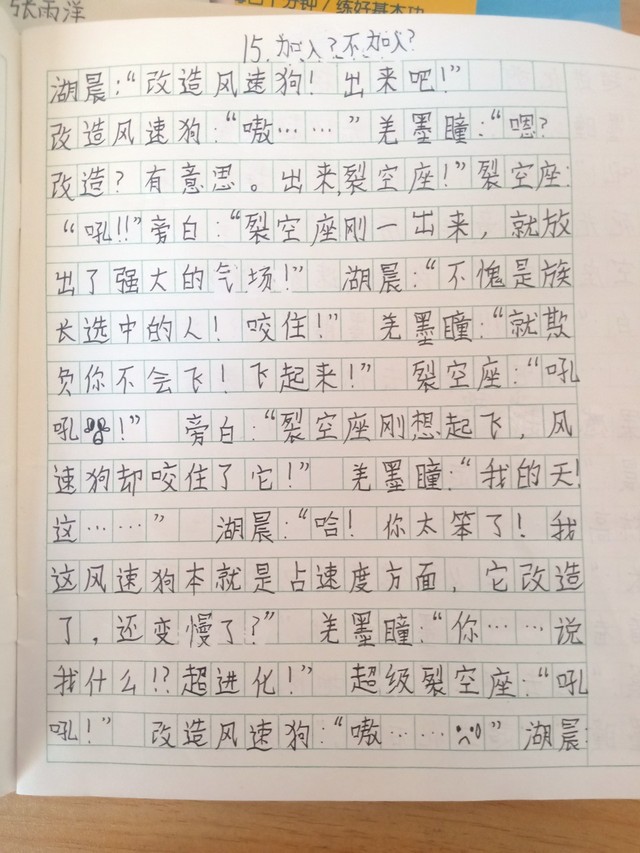 张雨洋
十分钟/练好基本功
15.加入？不加入？
湖晨：“改造风速狗！出来吧！”
改造风速狗：“嗷……”羌墨瞳：“嗯？
改造？有意思。出来，裂空座！”裂空座：
“吼！！”旁白：“裂空座刚一出来，就放
出了强大的气场！”湖晨：“不愧是族
长选中的人！咬住！”羌墨瞳：“就欺
负你不会飞！飞起来！”裂空座：“吼
吼！”旁白：“裂空座刚想起飞，风
速狗却咬住了它！”羌墨瞳：“我的天！
这……”湖晨：“哈！你太笨了！我
这风速狗本就是占速度方面，它改造
了，还变慢了？”羌墨瞳：“你……说
我什么！？超进化！”超级裂空座：“吼
吼！”改造风速狗：“嗷……”湖晨：